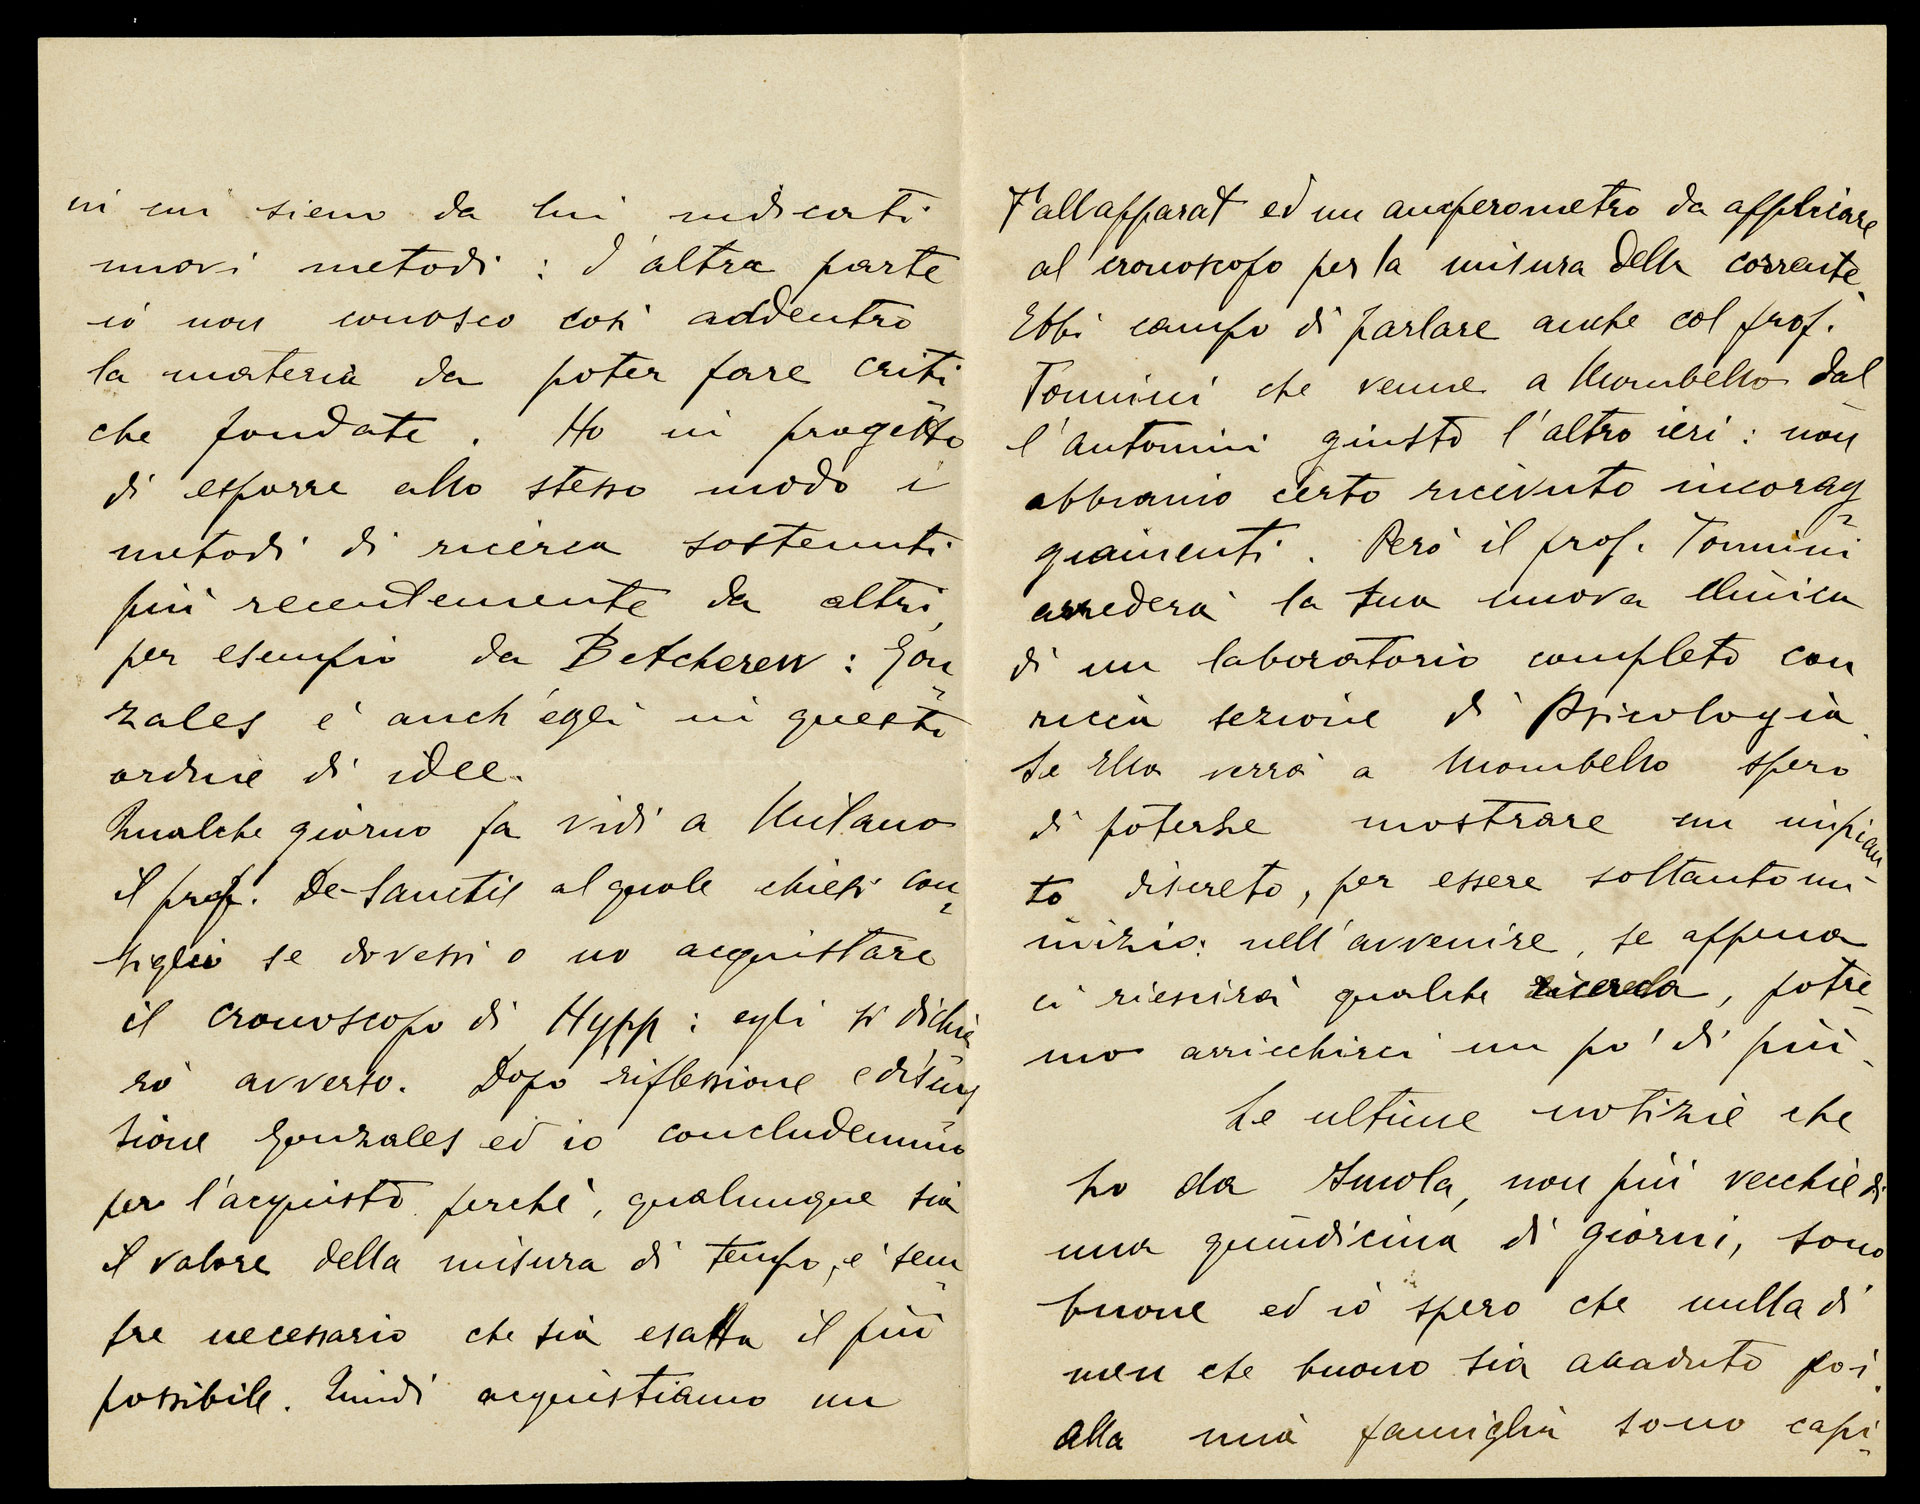 in cui sieno da lui indicati
nuovi metodi : d'altra parte
io non conosco così addentro
la materia da poter fare criti
che fondate . Ho in progetto
di esporre allo stesso modo i
metodi di ricerca sostenuti
più recentemente da altri,
per esempio da Betcherew : Gon-
zales è anch'egli in questo
ordine di idee.
Qualche giorno fa vidi a Milano
il prof. De-Sanctis al quale chiesi con-
siglio se dovessi o no acquistare
il cronoscopo di Hypp : egli si dichia
rò avverso. Dopo riflessione e discus
sione Gonzales ed io concludemmo
per l'acquisto perchè, qualunque sia
il valore della misura di tempo, è sem-
pre necessario che sia esatta il più
possibile. Quindi acquistiamo un
Fallapparat ed un amperometro da applicare
al cronoscopo per la misura della corrente.
Ebbi campo di parlare anche col prof.
Tonnini che venne a Mombello dal
l'Antonini giusto l'altro ieri : non
abbiamo certo ricevuto incorag-
giamenti . Però il prof. Tonnini
arrederà la sua nuova clinica
di un laboratorio completo con
ricca sezione di Psicologia.
Se Ella verrà a Mombello spero
di poterle mostrare un impian
to discreto, per essere soltanto in-
inizio: nell'avvenire, se appena
ci riescirà qualche ricerca, potre-
mo arricchirci un po' di più.
Le ultime notizie che
ho da Imola, non più vecchie di
una quindicina di giorni, sono
buone ed io spero che nulla di
men che buono sia accaduto poi.
Alla mia famiglia sono capi-